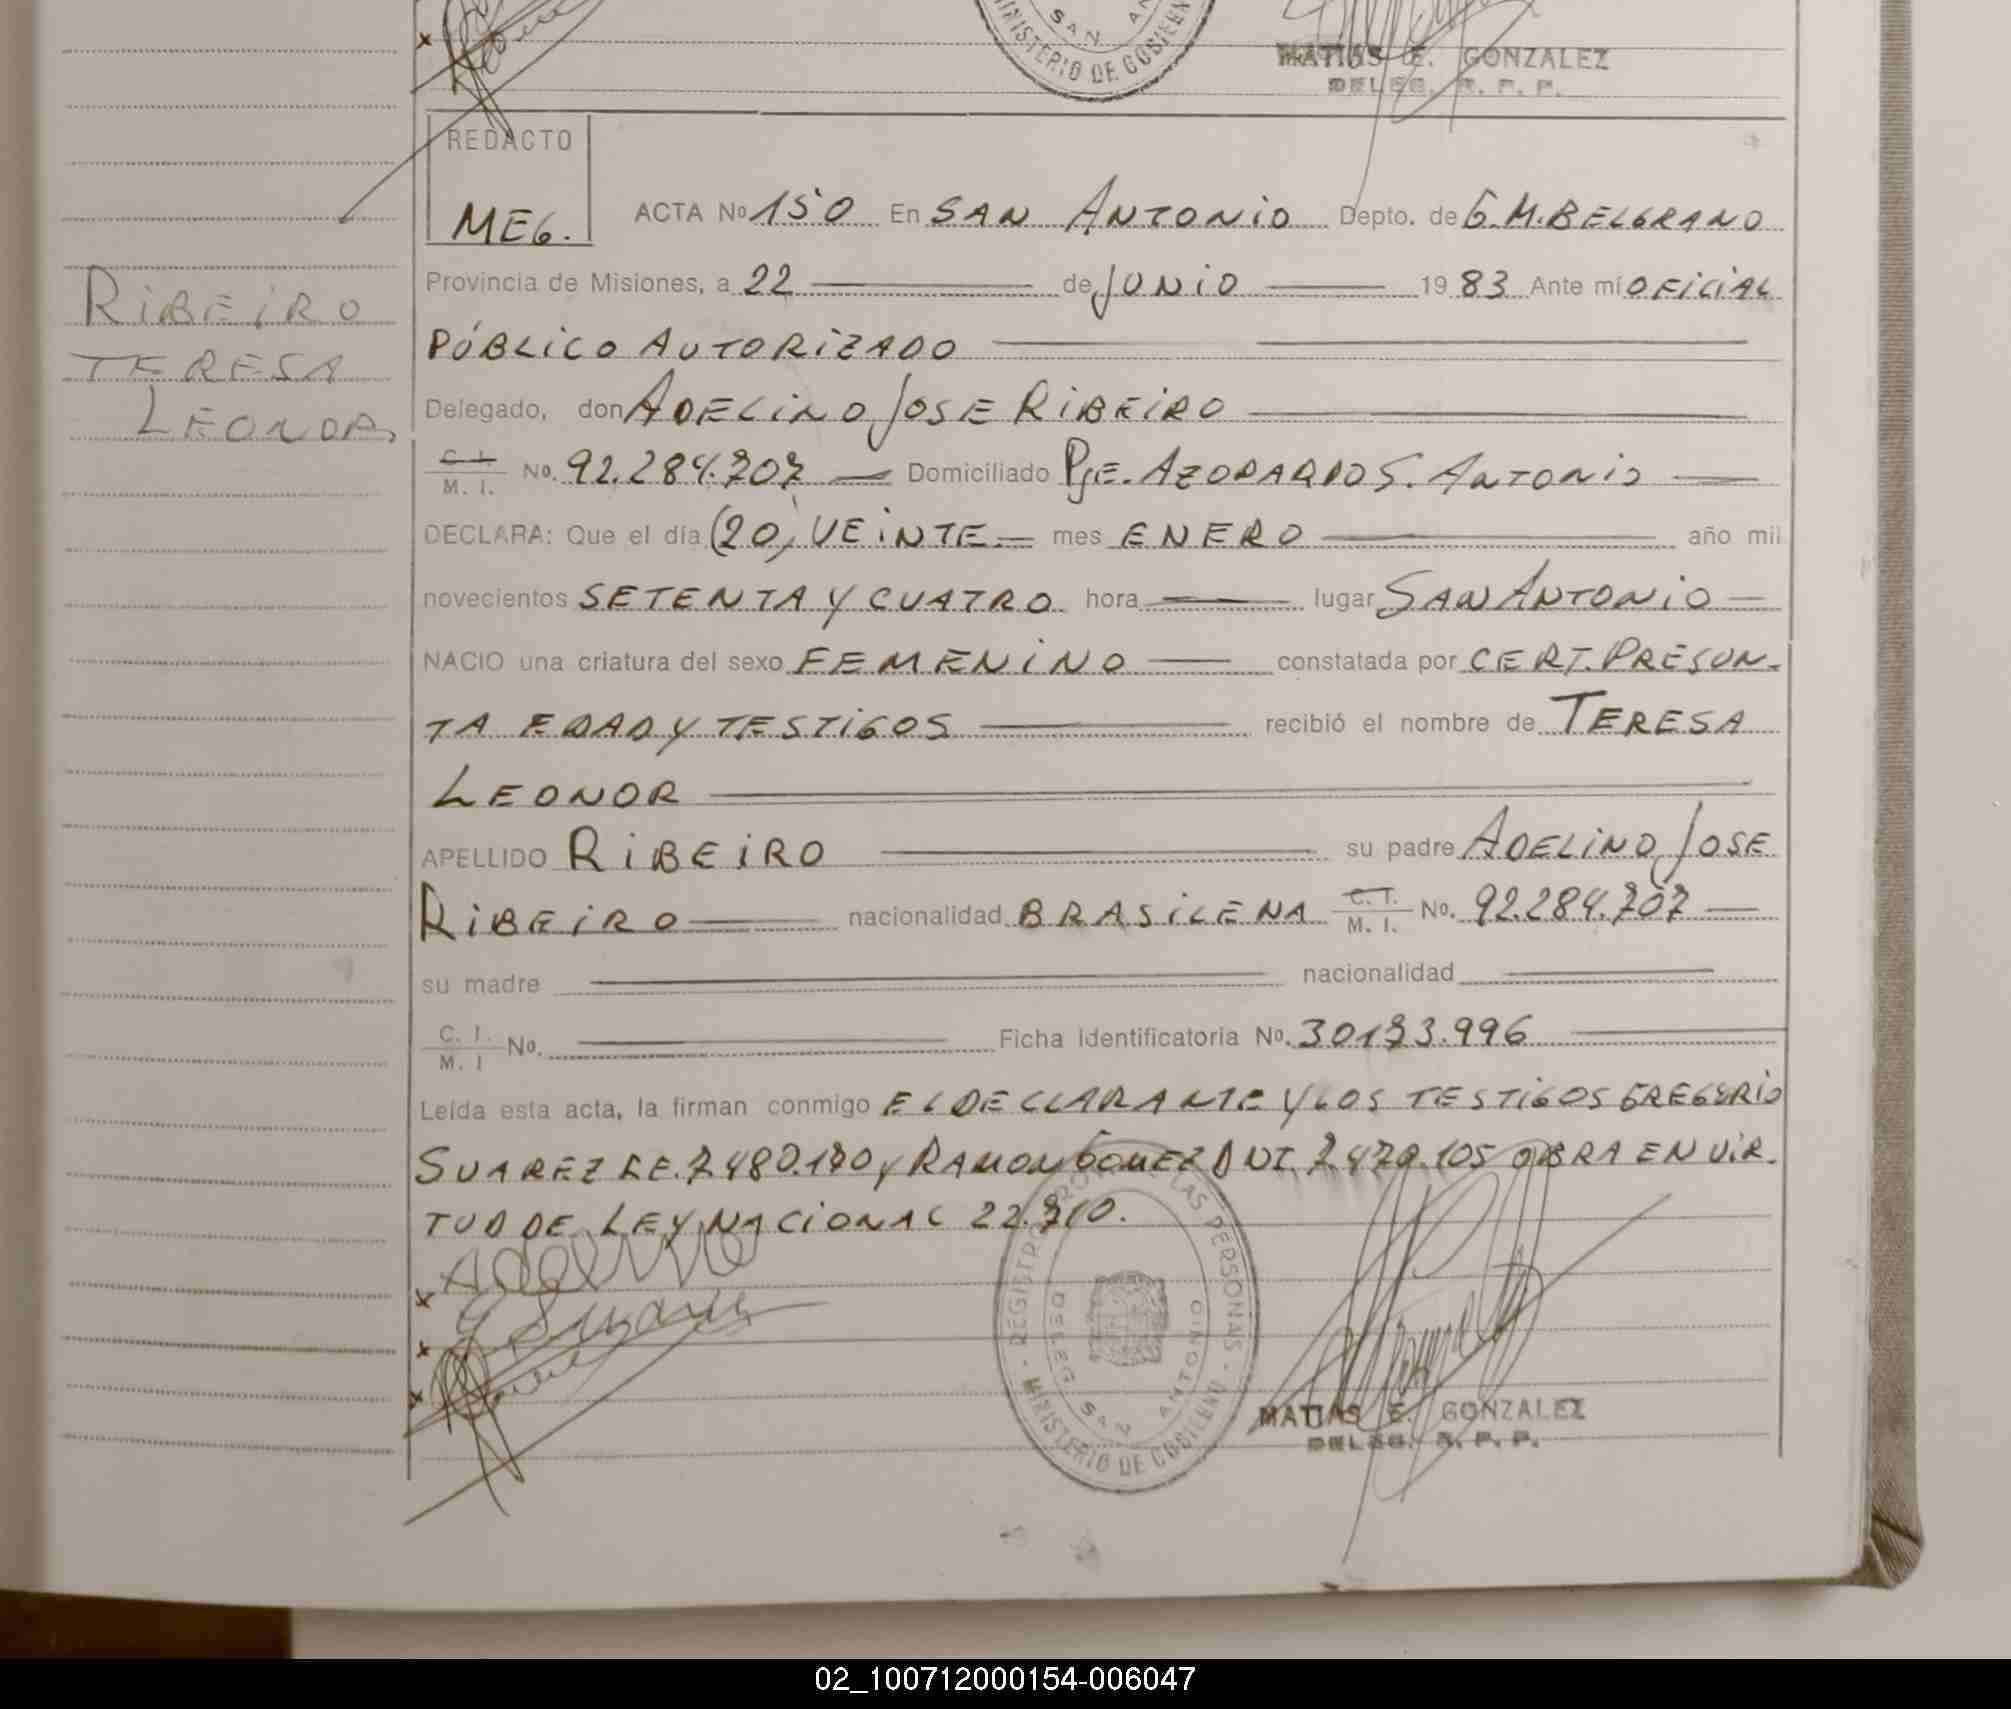 SAN AN
MINISTERIO DE GOBIERN
MATIAS E. GONZALEZ
DELEG. R. P. P.
REDACTO
MEG.
ACTA No 150 En SAN ANTONIO Depto. de G.M.BELGRANO
Provincia de Misiones, a 22 de JUNIO 19 83 Ante mí OFICIAL
PÚBLICO AUTORIZADO
RIBEIRO
TERESA
LEONOR
Delegado, don ADELINO JOSE RIBEIRO
C. I. / M. I. No. 92.284.707 Domiciliado Pje. AZOPARDO S. ANTONIO
DECLARA: Que el día (20) VEINTE.— mes ENERO año mil
novecientos SETENTA Y CUATRO hora lugar SAN ANTONIO
NACIO una criatura del sexo FEMENINO constatada por CERT. PRESUN-
TA EDAD Y TESTIGOS recibió el nombre de TERESA
LEONOR
APELLIDO RIBEIRO su padre ADELINO JOSE
RIBEIRO nacionalidad BRASILENA C. I. / M. I. No. 92.284.707
su madre nacionalidad
C. I. / M. I No. Ficha identificatoria No. 30173.996
Leída esta acta, la firman conmigo EL DECLARANTE Y LOS TESTIGOS GREGORIO
SUAREZ LE. 7.480.170 y RAMON GOMEZ DNI. 7.479.105 OBRA EN VIR-
TUD DE LEY NACIONAL 22.710.
x Adelino
x G Suarez
x
REGISTRO PROV. DE LAS PERSONAS
DELEG. SAN ANTONIO
MINISTERIO DE GOBIERNO
MATIAS E. GONZALEZ
DELEG. R. P. P.
02_100712000154-006047